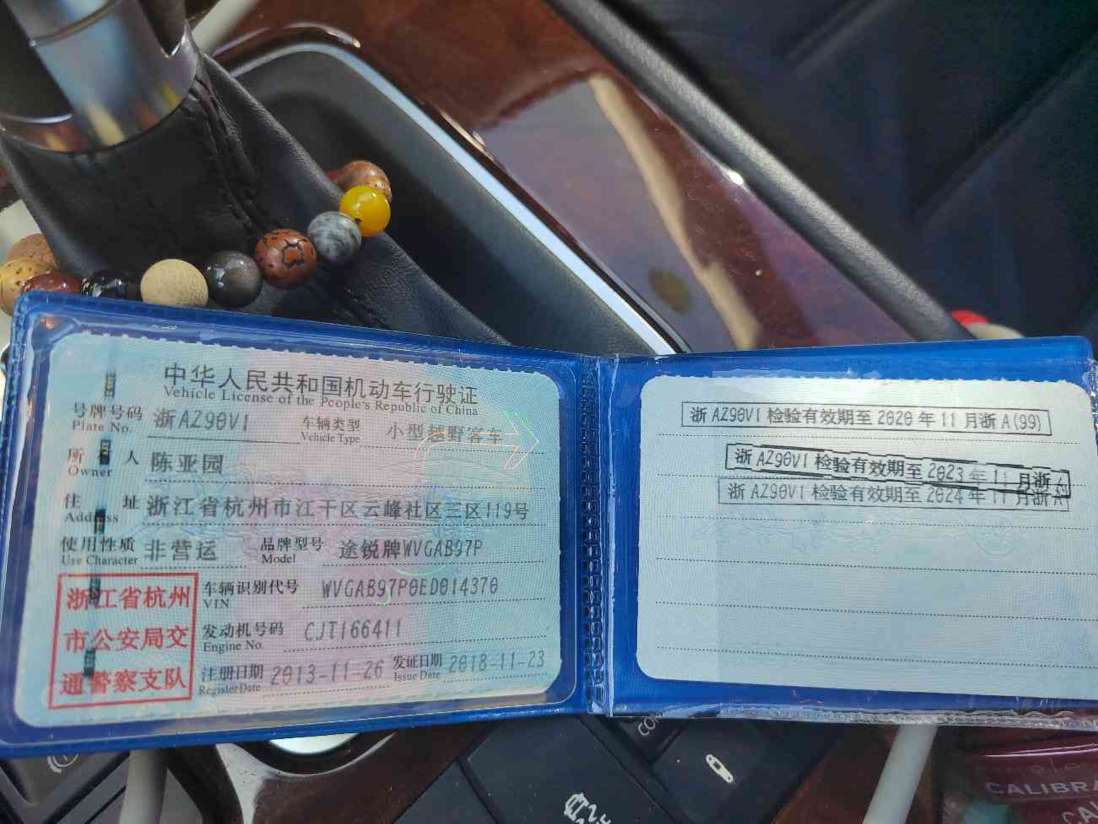 中华人民共和国机动车行驶证
Vehicle License of the People's Republic of China
号牌号码 浙AZ90V1 车辆类型 小型越野客车
Plate No. Vehicle Type
所有人 陈亚园
Owner
住址 浙江省杭州市江干区云峰社区三区119号
Address
使用性质 非营运 品牌型号 途锐牌WVGAB97P
Use Character Model
浙江省杭州
市公安局交
通警察支队
车辆识别代号 WVGAB97P0ED014370
VIN
发动机号码 CJT166411
Engine No.
注册日期 2013-11-26 发证日期 2018-11-23
Register Date Issue Date
浙AZ90V1检验有效期至2020年11月浙A(99)
浙AZ90V1检验有效期至2023年11月浙A
浙AZ90V1检验有效期至2024年11月浙A
CALIBRA
CA